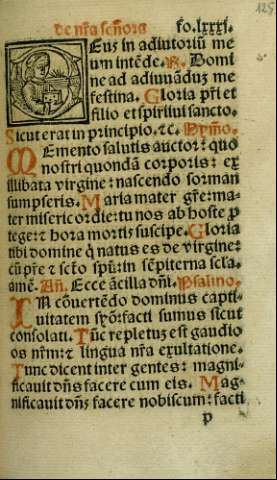 de nr̃a señora fo. lxxxj.
125
Deus in adiutoriũ me
um intẽde. ℟. Domi
ne ad adiuuãduz me
festina. Gloria pr̃i et
filio et spiritui sancto.
Sicut erat in principio. ⁊c. Hymno.
Memento salutis auctor: quo
nostri quondã corporis: ex
illibata virgine: nascendo formam
sumpseris. Maria mater gr̃e: ma-
ter misericordie: tu nos ab hoste p
tege: ⁊ hora mortis suscipe. Gloria
tibi domine q̇ natus es de virgine:
cũ pr̃e ⁊ sc̃to spũ: in sẽpiterna scl̃a.
amẽ. Añ. Ecce ãcilla dñi. Psalmo.
In cõuertẽdo dominus capti-
uitatem syõ: facti sumus sicut
consolati. Tũc repletuz est gaudio
os nrm̃: ⁊ lingua nr̃a exultatione.
Tunc dicent inter gentes: magni-
ficauit dñs facere cum eis. Mag-
nificauit dñs facere nobiscum: facti
p